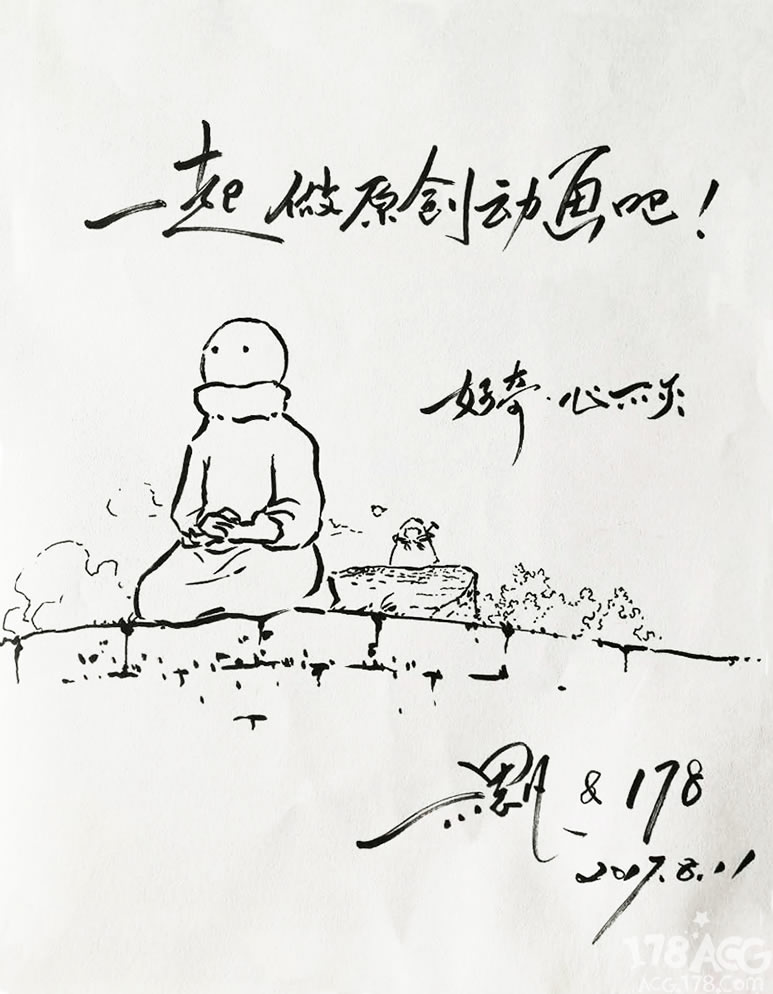 一起做原创动画吧！
好奇·心不灭
& 178
2017.8.11
178ACG
ACG.178.com